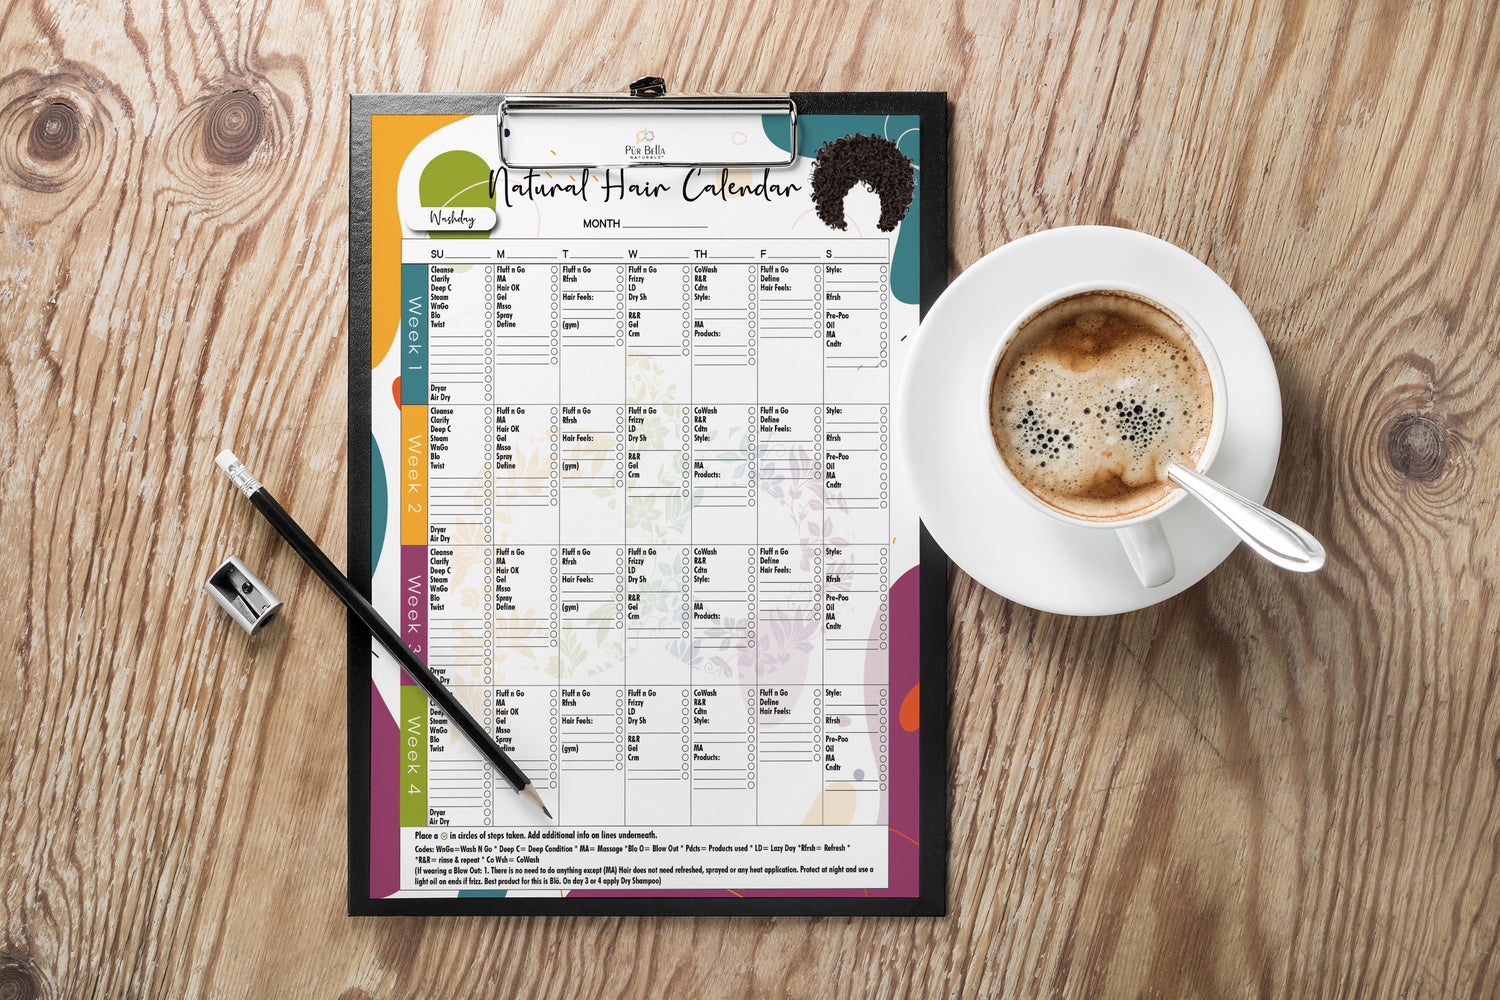 PÜR BELLA
NATURALS™
Natural Hair Calendar
Washday
MONTH
SU M T W TH F S
Week 1
Cleanse
Clarify
Deep C
Steam
WnGo
Blo
Twist
Dryar
Air Dry
Fluff n Go
MA
Hair OK
Gel
Msso
Spray
Define
Fluff n Go
Rfrsh
Hair Feels:
(gym)
Fluff n Go
Frizzy
LD
Dry Sh
R&R
Gel
Crm
CoWash
R&R
Cdtn
Style:
MA
Products:
Fluff n Go
Define
Hair Feels:
Style:
Rfrsh
Pre-Poo
Oil
MA
Cndtr
Week 2
Cleanse
Clarify
Deep C
Steam
WnGo
Blo
Twist
Dryar
Air Dry
Fluff n Go
MA
Hair OK
Gel
Msso
Spray
Define
Fluff n Go
Rfrsh
Hair Feels:
(gym)
Fluff n Go
Frizzy
LD
Dry Sh
R&R
Gel
Crm
CoWash
R&R
Cdtn
Style:
MA
Products:
Fluff n Go
Define
Hair Feels:
Style:
Rfrsh
Pre-Poo
Oil
MA
Cndtr
Week 3
Cleanse
Clarify
Deep C
Steam
WnGo
Blo
Twist
Dryar
Dry
Fluff n Go
MA
Hair OK
Gel
Msso
Spray
Define
Fluff n Go
Rfrsh
Hair Feels:
(gym)
Fluff n Go
Frizzy
LD
Dry Sh
R&R
Gel
Crm
CoWash
R&R
Cdtn
Style:
MA
Products:
Fluff n Go
Define
Hair Feels:
Style:
Rfrsh
Pre-Poo
Oil
MA
Cndtr
Week 4
Deep
Steam
WnGo
Blo
Twist
Dryar
Air Dry
Fluff n Go
MA
Hair OK
Gel
Msso
Spray
efine
Fluff n Go
Rfrsh
Hair Feels:
(gym)
Fluff n Go
Frizzy
LD
Dry Sh
R&R
Gel
Crm
CoWash
R&R
Cdtn
Style:
MA
Products:
Fluff n Go
Define
Hair Feels:
Style:
Rfrsh
Pre-Poo
Oil
MA
Cndtr
Place a ✓ in circles of steps taken. Add additional info on lines underneath.
Codes: WnGo=Wash N Go * Deep C= Deep Condition * MA= Massage *Blo O= Blow Out * Pdcts= Products used * LD= Lazy Day *Rfrsh= Refresh *
*R&R= rinse & repeat * Co Wsh= CoWash
(If wearing a Blow Out: 1. There is no need to do anything except (MA) Hair does not need refreshed, sprayed or any heat application. Protect at night and use a
light oil on ends if frizz. Best product for this is Blō. On day 3 or 4 apply Dry Shampoo)